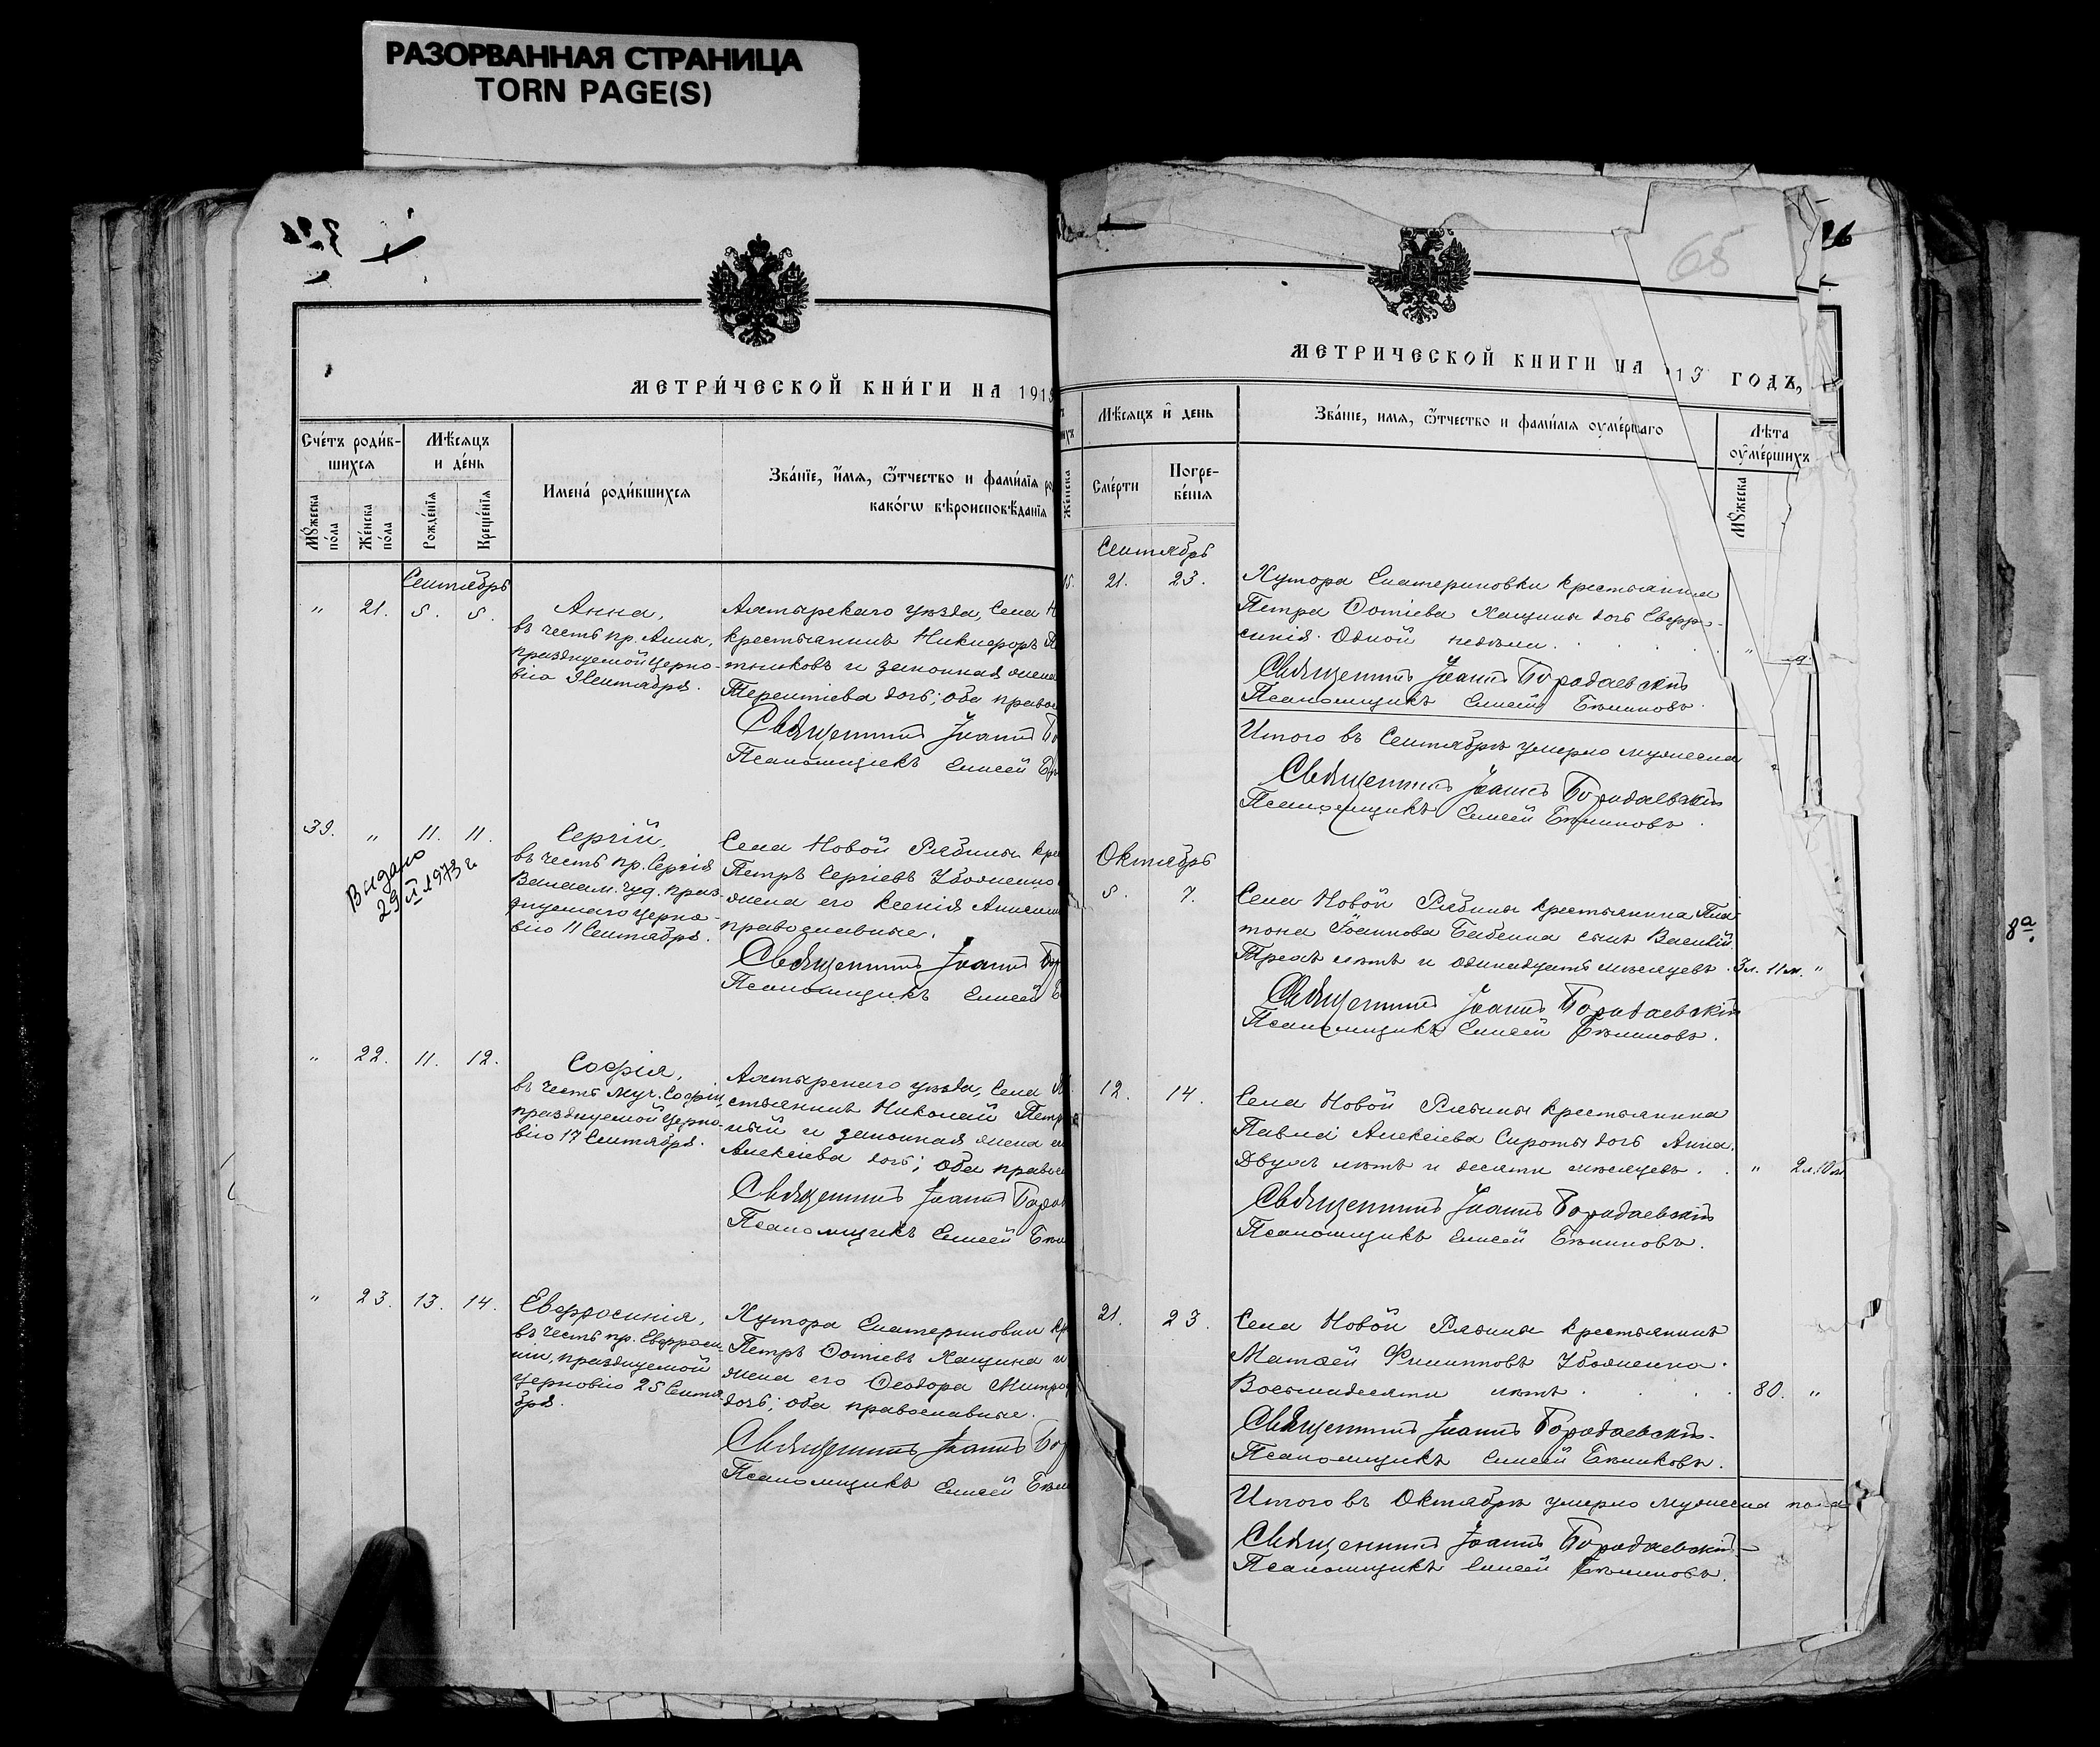 РАЗОРВАННАЯ СТРАНИЦА
TORN PAGE(S)
МЕТРИ́ЧЕСКОЙ КНИ́ГИ НА 1913
Сче́тъ роди́в-
шихся
Мѣ́сяцъ
и де́нь
Мꙋ́жеска по́ла
Же́нска по́ла
Рожде́нїя
Креще́нїя
Имена́ роди́вшихся
Зва́нїе, и́мя, ѻ҆́тчество и фами́лїя
како́гѡ вѣроисповѣ́данїя
Сентябрь
" 21. 5. 5.
Анна,
въ честь пр. Анны,
празднуемой Церко-
вію 9 Сентября.
Ахтырскаго уѣзда, Села
крестьянинъ Никифоръ
и законная жена
Терентіева дочь; оба
Священникъ Іоаннъ
Псаломщикъ Елисей
39. " 11. 11.
Выдано
1973 г.
Сергій,
въ честь пр. Сергія
Валаам. чуд. праз-
днуемаго Церко-
вію 11 Сентября.
Села Новой Рябины
Петръ Сергіевъ Убоженко
жена его Ксенія
православные.
Священникъ Іоаннъ
Псаломщикъ Елисей
" 22. 11. 12.
Софія,
въ честь муч. Софіи,
празднуемой Церко-
вію 17 Сентября.
Ахтырскаго уѣзда, Села
стьянинъ Николай
и законная жена
Алексіева дочь; оба
Священникъ Іоаннъ
Псаломщикъ Елисей
" 23. 13. 14.
Евфросинія,
въ честь пр. Евфроси
ніи, празднуемой
Церковію 25 Сентя-
бря.
Хутора Екатериновки
Петръ Фотіевъ Хащина и
жена его Ѳеодора
дочь; оба православные.
Священникъ Іоаннъ
Псаломщикъ Елисей
65
МЕТРИЧЕСКОЙ КНИГИ НА 13 ГОДЪ,
Мѣ́сяцъ и҆ де́нь
Же́нска
Сме́рти
Погре-
бе́нїя
Зва́нїе, имя, ѻ҆́тчество и фами́лїя оуме́ршаго
Лѣ́та
оу҆ме́ршихъ
Мꙋ́жеска
Сентябрь
15. 21. 23.
Хутора Екатериновки крестьянина
Петра Фотіева Хащины дочь Евфро-
синія. Одной недѣли.
Священникъ Іоаннъ Бородаевскій
Псаломщикъ Елисей Бѣликовъ.
Итого въ Сентябрѣ умерло мужеска
Священникъ Іоаннъ Бородаевскій
Псаломщикъ Елисей Бѣликовъ.
Октябрь
5. 7.
Села Новой Рябины крестьянина Пла-
тона Іоаннова Бабенка сынъ Василій.
Трехъ лѣтъ и одинадцать мѣсяцевъ. 3 л. 11 м. "
Священникъ Іоаннъ Бородаевскій
Псаломщикъ Елисей Бѣликовъ.
12. 14.
Села Новой Рябины крестьянина
Павла Алексіева Сироты дочь Анна.
Двухъ лѣтъ и десяти мѣсяцевъ. " 2 л. 10 м.
Священникъ Іоаннъ Бородаевскій
Псаломщикъ Елисей Бѣликовъ.
21. 23.
Села Новой Рябины крестьянинъ
Матѳей Филипповъ Убоженко.
Восьмидесяти лѣтъ. 80. "
Священникъ Іоаннъ Бородаевскій.
Псаломщикъ Елисей Бѣликовъ.
Итого въ Октябрѣ умерло мужеска пола
Священникъ Іоаннъ Бородаевскій
Псаломщикъ Елисей Бѣликовъ.
8а.